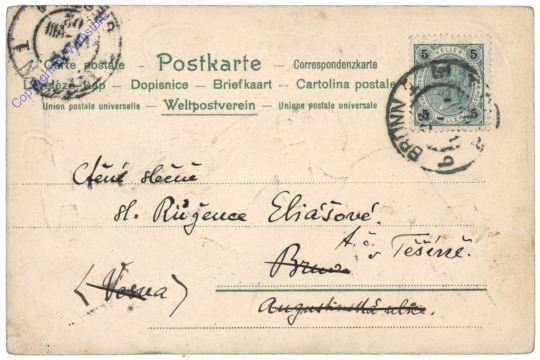 Carte postale — Postkarte — Correspondenzkarte
Dopisnice — Briefkaart — Cartolina postale
Union postale universelle — Weltpostverein — Unione postale universale
5 HELLER 5
5 5
BRÜNN
Ctěné slečně
sl. Růžence Eliášové.
t. č. v Těšíně
Brno
(Vesna)
Augustinská ulice.